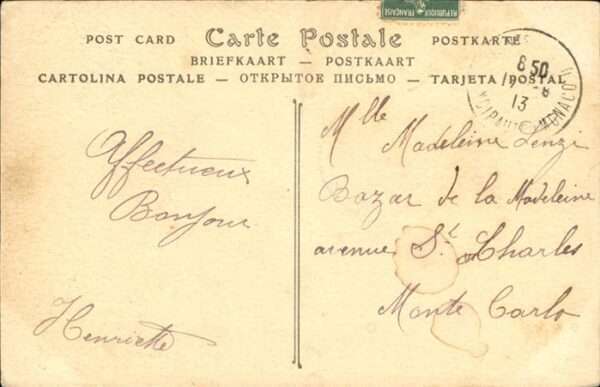 REPUBLIQUE FRANÇAISE
POST CARD Carte Postale POSTKARTE
BRIEFKAART — POSTKAART
CARTOLINA POSTALE — ОТКРЫТОЕ ПИСЬМО — TARJETA POSTAL
8 50
13
MONACO
Affectueux
Bonjour
Henriette
Mlle
Madeleine Lenzi
Bazar de la Madeleine
avenue St Charles
Monte Carlo